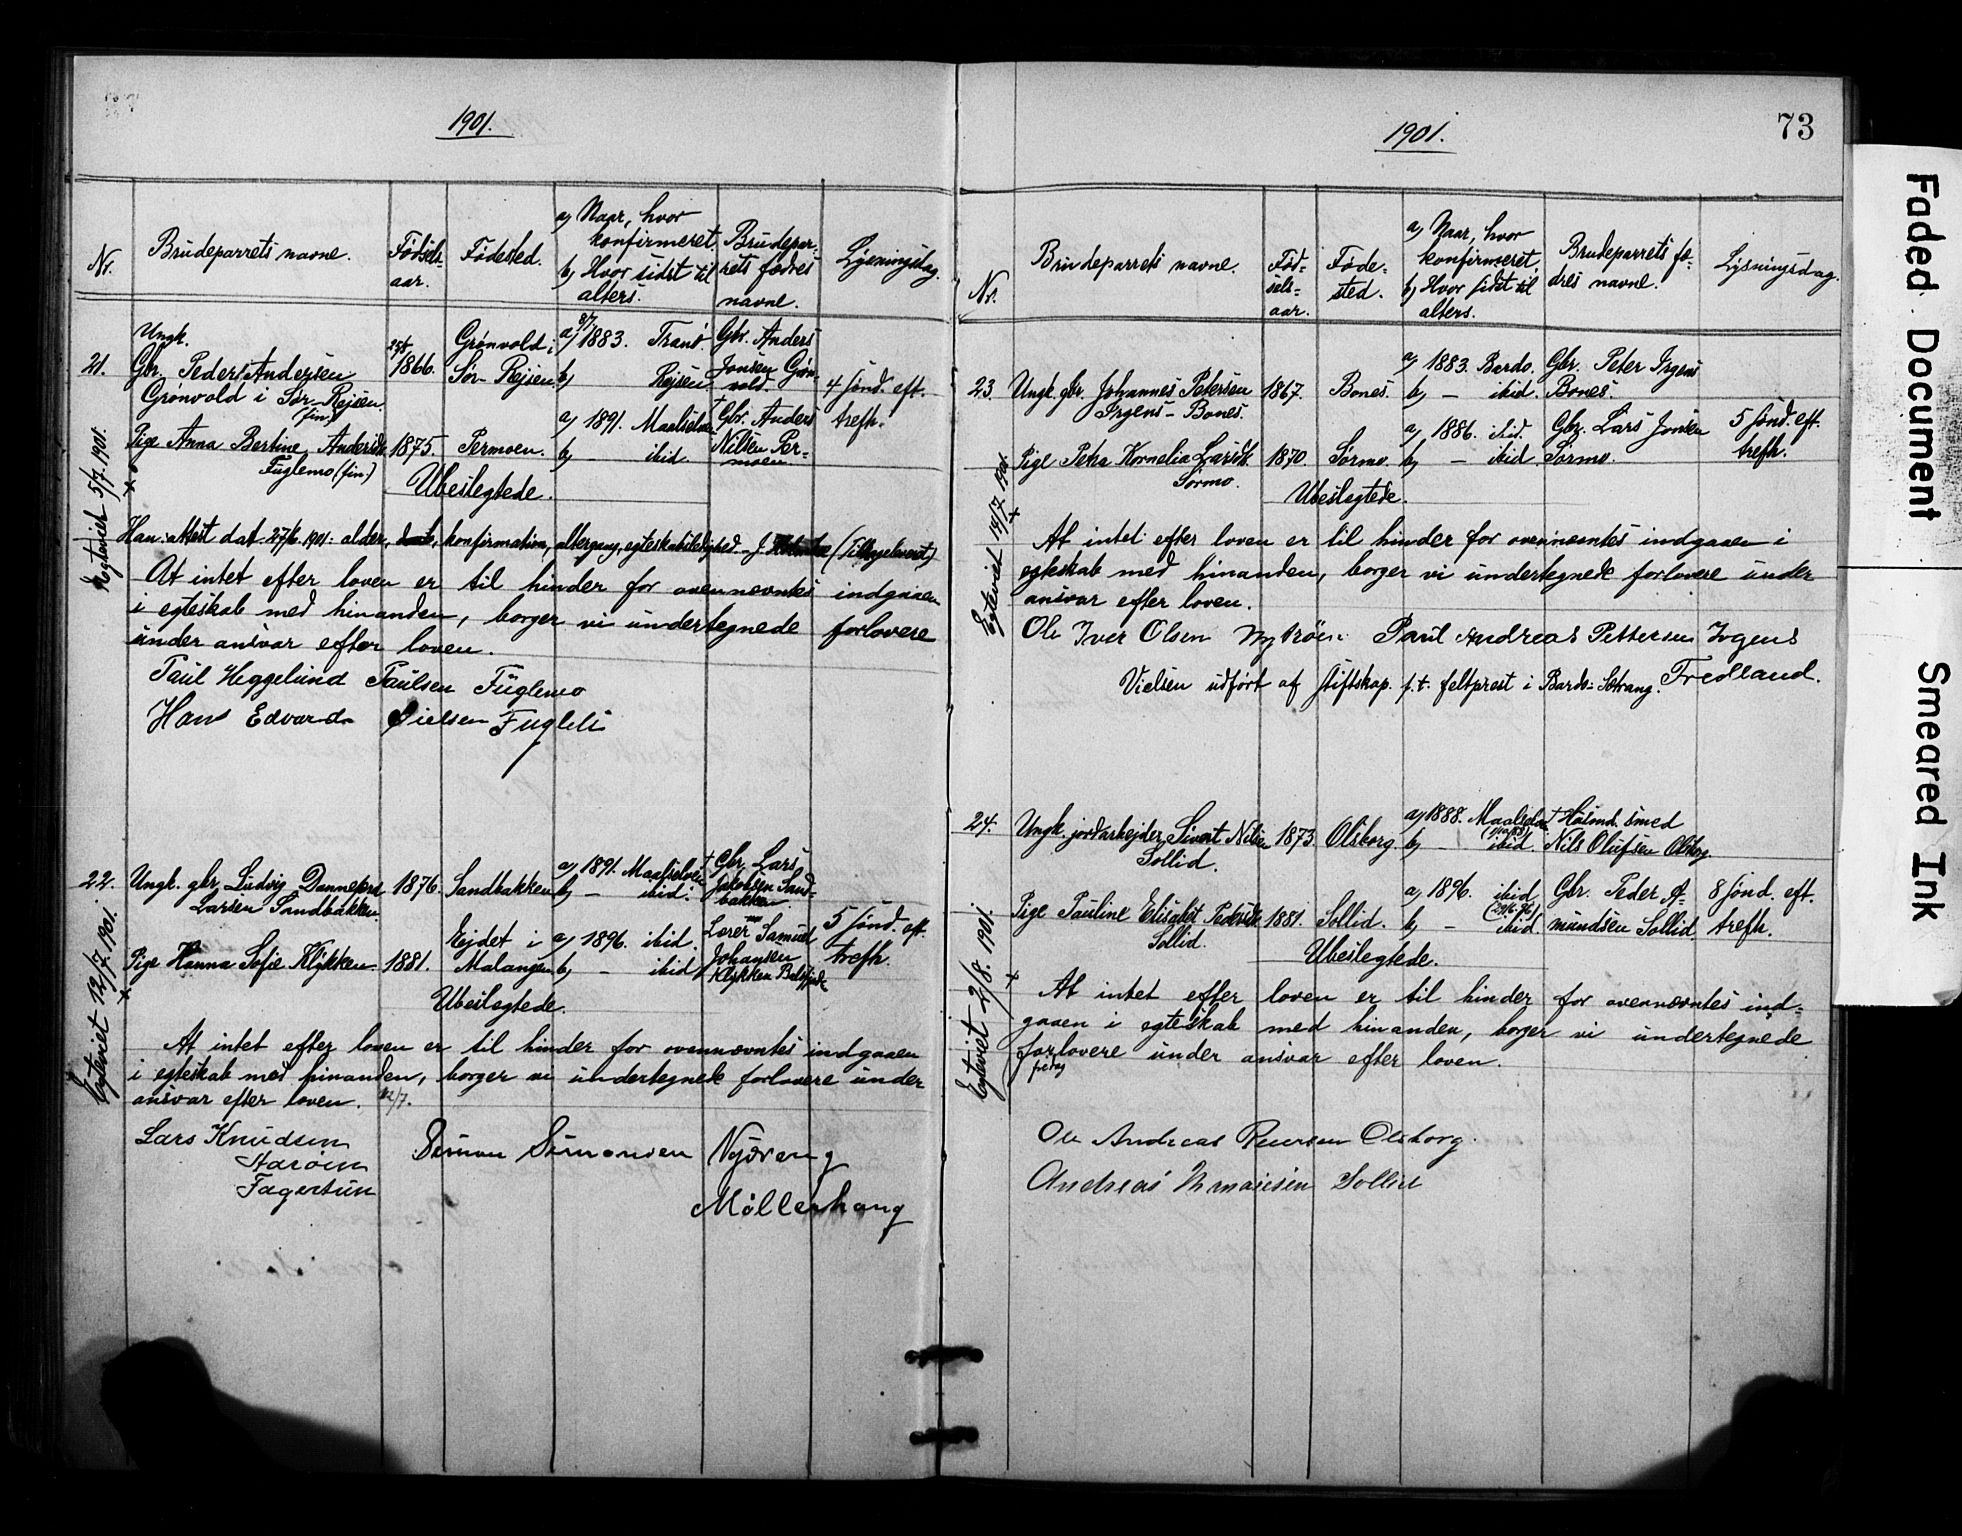 1901.
Nr.
Brudeparrets navne.
Fødsels-
aar.
Fødested.
a) Naar, hvor
konfirmeret
b) Hvor sidst til
alters.
Brudepar-
rets fædres
navne.
Lysningsdag.
21.
Ungk.
Gbr. Peder Andersen
Grønvold i Sør-Rejsen
(fin)
25/8
1866.
Grønvold i
Sør-Rejsen
a) 8/7 1883. Tranø.
b) Rejsen
Gbr. Anders
Jonsen Grøn-
vold.
4 sønd. eft.
trefh.
Pige Anna Bertine Andersdt.
Fuglemo (fin)
1875.
Permoen.
a) 1891. Maalselven
b) ibid.
† Gbr. Anders
Nilsen Per-
moen
Ubeslegtede.
Egteviet 5/7 1901.
Han: Attest dat. 27/6 1901. alder, konfirmation, altergang, egteskabsledighed
At intet efter loven er til hinder for ovennevntes indgaaen
i egteskab med hinanden, borger vi undertegnede forlovere
under ansvar efter loven.
Paul Heggelund Paulsen Fuglemo
Hans Edvard Nielsen Fugleli
22.
Ungk. gbr. Ludvig Danneford
Larsen Sandbakken
1876.
Sandbakken
a) 1891. Maalselven
b) — ibid.
† Gbr. Lars
Jakobsen Sand-
bakken
5 sønd. eft.
trefh.
Pige Hanna Sofie Klykken.
1881.
Ejdet i
Malangen
a) 1896. ibid.
b) — ibid
Lærer Samuel
Johansen
Klykken Balsfjord
Ubeslegtede.
Egteviet 12/7. 1901.
At intet efter loven er til hinder for ovennævntes indgaaen
i egteskab med hinanden, borger vi undertegnede forlovere under
ansvar efter loven. 12/7.
Lars Knudsen
Aarøen
Fagertun
Simon Simonsen Nyvreng
Møllerhaug
73
1901.
Nr.
Brudeparrets navne.
Fød-
sels-
aar.
Føde-
sted.
a) Naar, hvor
konfirmeret
b) Hvor sidst til
alters.
Brudeparrets fæ-
dres navne.
Lysningsdag.
23.
Ungk. gbr. Johannes Petersen
Irgens-Bones.
1867.
Bones.
a) 1883. Bardo.
b) — ibid.
Gbr. Peter Irgens
Bones.
5 sønd. eft.
trefh.
Pige Petra Kornelia Larsdt.
Sørmo.
1870.
Sørmo.
a) 1886. ibid.
b) — ibid.
Gbr. Lars Jonsen
Sørmo.
Ubeslegtede.
Egteviet 14/7. 1901.
At intet efter loven er til hinder for ovennævntes indgaaen i
egteskab med hinanden, borger vi undertegnede forlovere under
ansvar efter loven.
Ole Iver Olsen Nytrøen Paul Andreas Pettersen Irgens
Fredland.
Vielsen udført af stiftskap. f. t. feltprest i Bardo: Sætrang.
24.
Ungk. jordarbejder Sivert Nilsen
Sollid.
1873.
Olsborg.
a) 1888. Maalselven
b) — ibid.
† Husmd. smed
Nils Olufsen Olsborg.
Pige Pauline Elisabet Pedersdt.
Sollid.
1881.
Sollid.
a) 1896. ibid
b) — ibid
Gbr. Peder A-
mundsen Sollid.
8 sønd. eft.
trefh.
Ubeslegtede.
Egteviet 2/8. 1901.
fredag
At intet efter loven er til hinder for ovennævntes ind-
gaaen i egteskab med hinanden, borger vi undertegnede
forlovere under ansvar efter loven.
Ole Andreas Olsborg.
Andreas Sollid
Faded Document
Smeared Ink